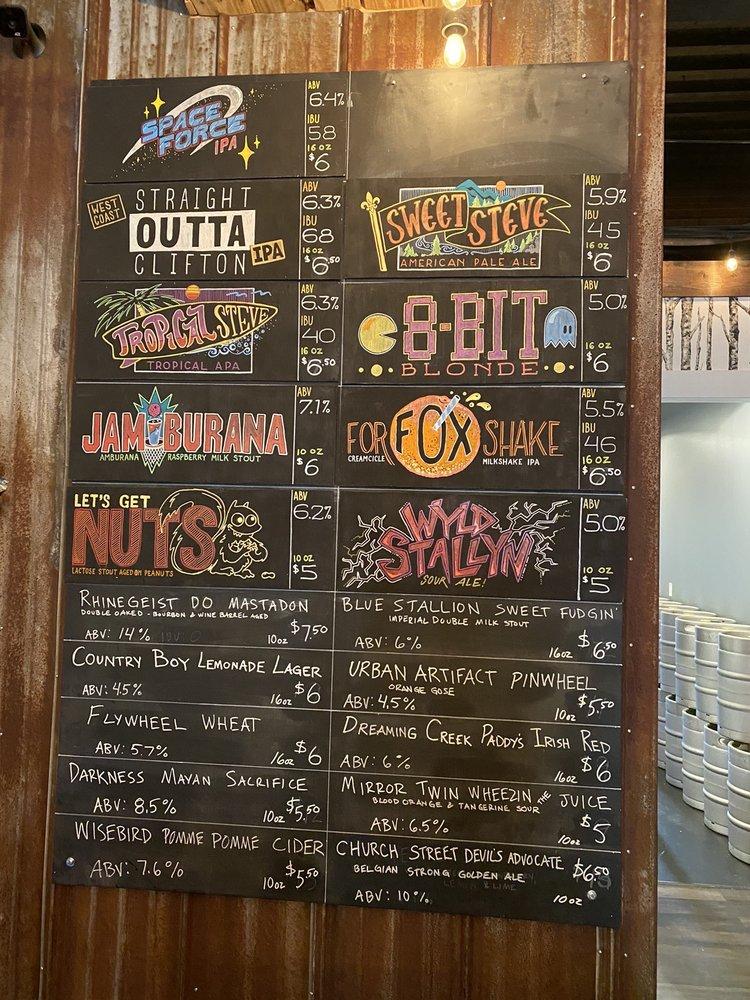 SPACE
FORCE
IPA
ABV
6.4%
IBU
58
16 OZ
$6
WEST
COAST
STRAIGHT
OUTTA
CLIFTON
IPA
ABV
6.3%
IBU
68
16 OZ
$6.50
SWEET STEVE
AMERICAN PALE ALE
ABV
5.9%
IBU
45
16 OZ
$6
TROPICAL STEVE
TROPICAL APA
ABV
6.3%
IBU
40
16 OZ
$6.50
8-BIT
BLONDE
ABV
5.0%
16 OZ
$6
JAMBURANA
AMBURANA RASPBERRY MILK STOUT
ABV
7.1%
10 OZ
$6
FOR FOX SHAKE
CREAMCICLE MILKSHAKE IPA
ABV
5.5%
IBU
46
16 OZ
$6.50
LET'S GET
NUTS
LACTOSE STOUT AGED ON PEANUTS
ABV
6.2%
10 OZ
$5
WYLD
STALLYN
SOUR ALE!
ABV
5.0%
10 OZ
$5
RHINEGEIST DO MASTADON
DOUBLE OAKED - BOURBON & WINE BARREL AGED
ABV: 14%
10oz $7.50
BLUE STALLION SWEET FUDGIN'
IMPERIAL DOUBLE MILK STOUT
ABV: 6%
16oz $6.50
COUNTRY BOY LEMONADE LAGER
ABV: 4.5%
16oz $6
URBAN ARTIFACT PINWHEEL
ORANGE GOSE
ABV: 4.5%
10oz $5.50
FLYWHEEL WHEAT
ABV: 5.7%
16oz $6
DREAMING CREEK PADDY'S IRISH RED
ABV: 6%
16oz $6
DARKNESS MAYAN SACRIFICE
ABV: 8.5%
10oz $5.50
MIRROR TWIN WHEEZIN THE JUICE
BLOOD ORANGE & TANGERINE SOUR
ABV: 6.5%
10oz $5
WISEBIRD POMME POMME CIDER
ABV: 7.6%
10oz $5.50
CHURCH STREET DEVIL'S ADVOCATE
BELGIAN STRONG GOLDEN ALE
$6.50
ABV: 10%
10oz